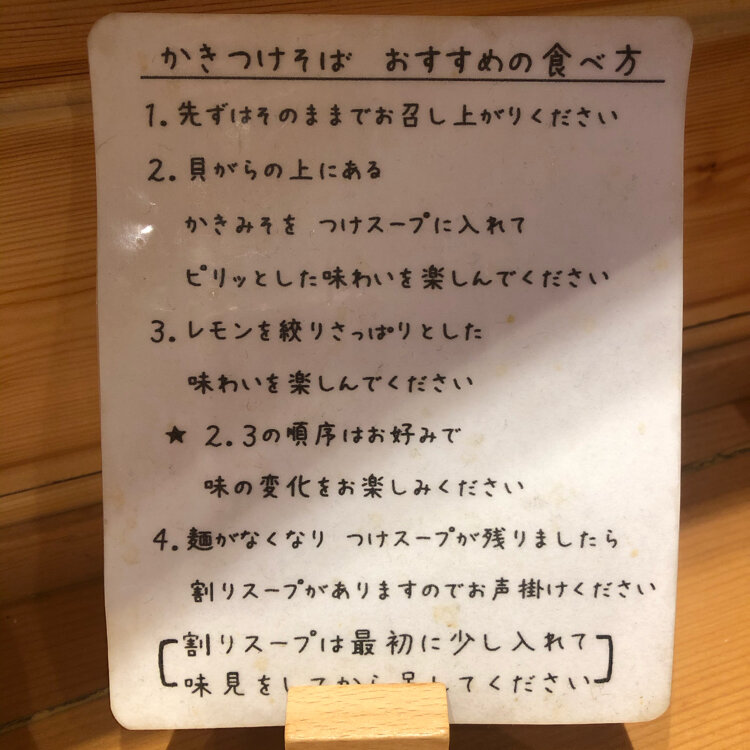 かきつけそば おすすめの食べ方
1. 先ずはそのままでお召し上がりください
2. 貝がらの上にある
かきみそを つけスープに入れて
ピリッとした味わいを楽しんでください
3. レモンを絞りさっぱりとした
味わいを楽しんでください
★ 2.3の順序はお好みで
味の変化をお楽しみください
4. 麺がなくなり つけスープが残りましたら
割りスープがありますのでお声掛けください
割りスープは最初に少し入れて
味見をしてから足してください